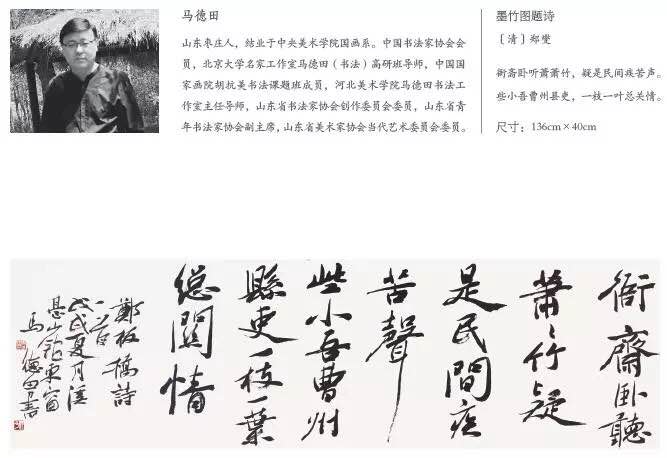 马德田
山东枣庄人，结业于中央美术学院国画系。中国书法家协会会
员，北京大学名家工作室马德田（书法）高研班导师，中国国
家画院胡抗美书法课题班成员，河北美术学院马德田书法工
作室主任导师，山东省书法家协会创作委员会委员，山东省青
年书法家协会副主席，山东省美术家协会当代艺术委员会委员。
墨竹图题诗
〔清〕郑燮
衙斋卧听萧萧竹，疑是民间疾苦声。
些小吾曹州县吏，一枝一叶总关情。
尺寸：136cm×40cm
衙齋卧聽
蕭〻竹疑
是民間疾
苦聲
些小吾曹州
縣吏一枝一葉
總關情
鄭板橋詩
一首
戊戌夏月
山館東窗
馬德田書